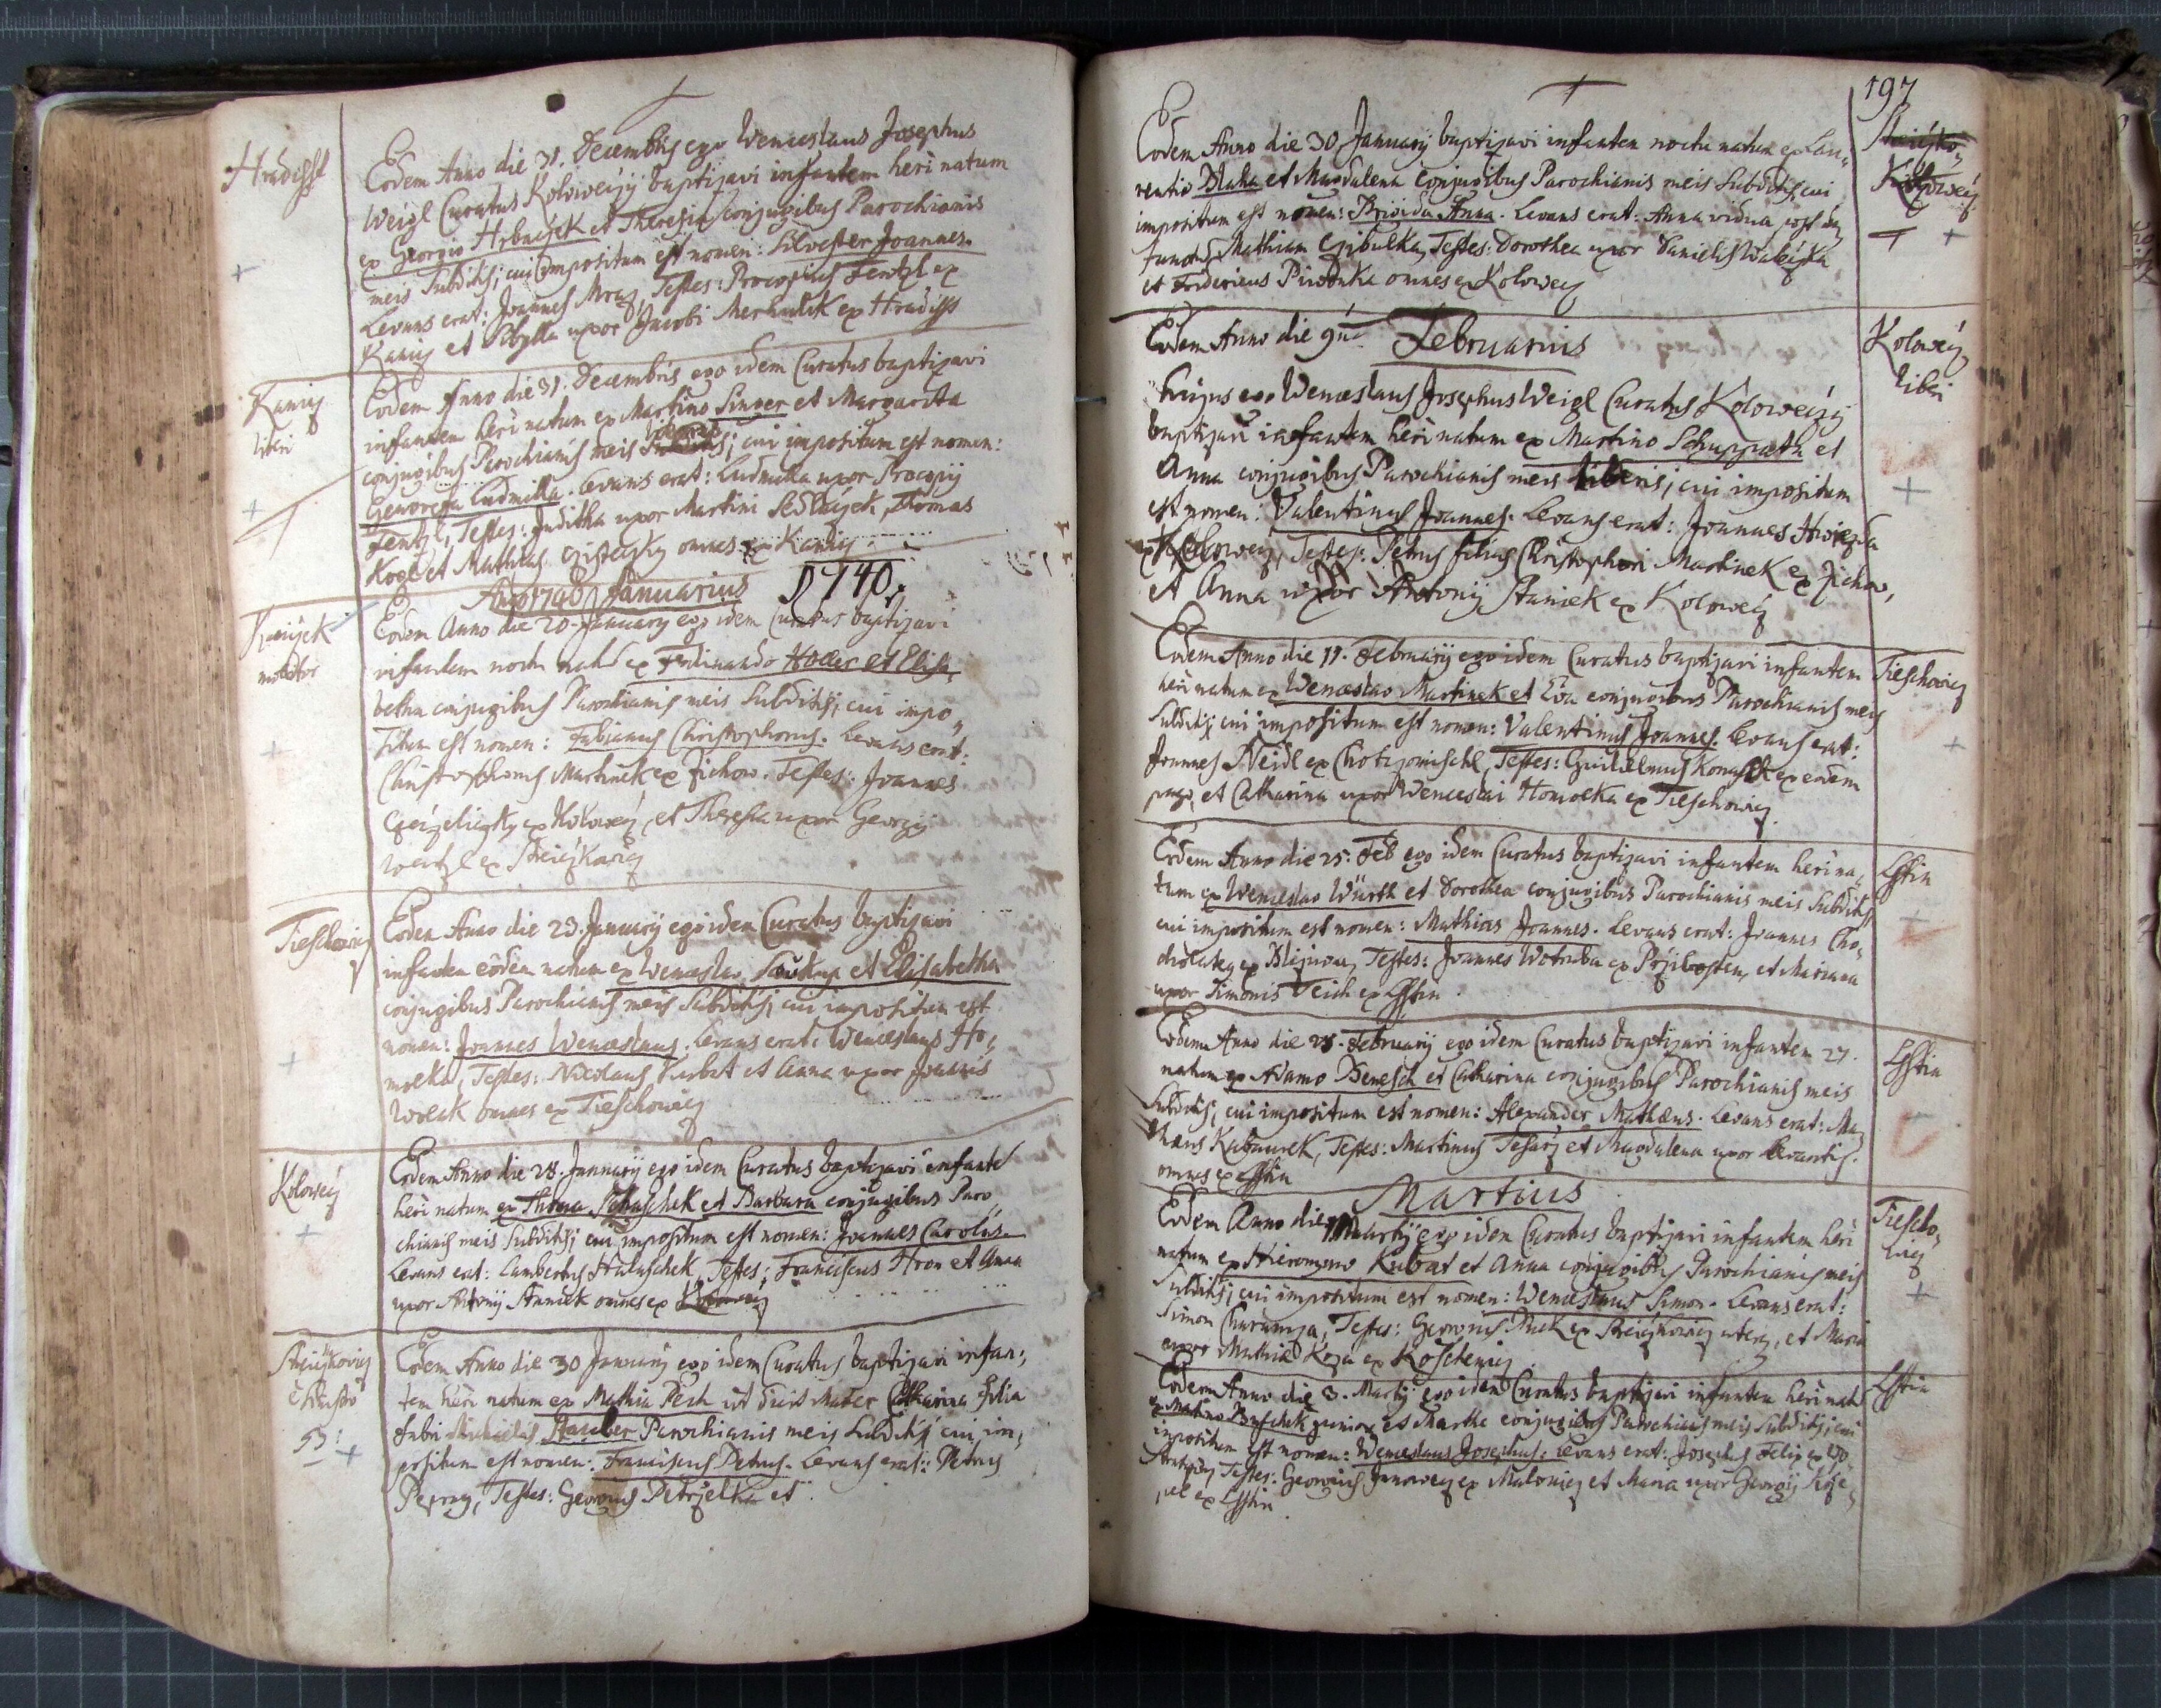 Hradischt
Eodem Anno die 31. Decembris ego Wenceslaus Josephus
Weigl Curatus Koloweizij baptizavi infantem heri natum
ex Georgio Hrbaczek et Theresia conjugibus Parochianis
meis Subditis, cui impositum est nomen: Silvester Joannes.
Levans erat: Joannes Mraz, Testes: Procopius Fentzl ex
Kaniz et Sibylla uxor Jacobi Merhulik ex Hradisst
Kaniz
liberi
Eodem Anno die 31. Decembris ego idem Curatus baptizavi
infantem heri natum ex Martino Singer et Margarita
conjugibus Parochianis meis liberis; cui impositum est nomen:
Ludmilla. Levans erat: Ludmilla uxor Procopij
Fentzl, Testes: Juditha uxor Martini Sedlaczek, Thomas
Kogl et Mathias omnes ex Kaniz.
Anno 1740 Januarius 1740.
molitor
Eodem Anno die 20. January ego idem Curatus baptizavi
infantem noctu natum ex Ferdinando Holler et Elisa,
betha conjugibus Parochianis meis Subditis, cui impo,
situm est nomen: Fabianus Christophorus. Levans erat:
Christophorus Martinek ex Zichow. Testes: Joannes
ex Kolowez, et Theresia uxor Georgij
ex
Tieschowiz
Eodem Anno die 23. January ego idem Curatus baptizavi
infantem eodem natum ex Wenceslao Saukup et Elisabetha
conjugibus Parochianis meis Subditis, cui impositum est
nomen: Joannes Wenceslaus. Levans erat: Wenceslaus Ho,
molka, Testes: Nicolaus Kubat et Anna uxor Joannis
Wolek omnes ex Tieschowiz
Koloweiz
Eodem Anno die 28. January ego idem Curatus baptizavi infante
heri natum ex Thoma Schaschek et Barbara conjugibus Paro,
chianis meis Subditis; cui impositum est nomen: Joannes Carolus.
Levans erat: Lambertus Haluschek, Testes: Franciscus Hron et Anna
uxor Antonij Staniek omnes ex Kolowez
53:
Eodem Anno die 30 January ego idem Curatus baptizavi infan,
tem heri natum ex Mathia Pech ut dicit Mater Catharina filia
fabri Michaelis Parochianis meis Subditis cui im,
positum est nomen: Franciscus Petrus. Levans erat: Petrus
Testes: Georgius Petrzelka et
197
Koloweiz
Eodem Anno die 30 January baptizavi infantem noctu natum ex Lau,
rentio Blaha et Magdalena conjugibus Parochianis meis Subditis, cui
impositum est nomen: Brigida Anna. Levans erat: Anna vidua post de,
functum Mathiam Czibulka, Testes: Dorothea uxor Danielis
et Fridericus Piwonka omnes ex Kolowez
Koloweiz
liberi
Eodem Anno die 9na Februarius
hujus ego Wenceslaus Josephus Weigl Curatus Koloweizij
baptizavi infantem heri natum ex Martino Schuppath et
Anna conjugibus Parochianis meis liberis, cui impositum
est nomen: Valentinus Joannes. Levans erat: Joannes Hwiezda
ex Kolowez, Testes: Petrus filius Christophori Martinek ex Zichow,
et Anna uxor Antonij Staniek ex Koloweiz
Tieschowiz
Eodem Anno die 11. February ego idem Curatus baptizavi infantem
heri natum ex Wenceslao Martinek et Eva conjugibus Parochianis meis
Subditis cui impositum est nomen: Valentinus Joannes. Levans erat:
Joannes Neidl ex Chotzomischl, Testes: Guilielmus ex eodem
pago, et Catharina uxor Wenceslai Homolka ex Tieschowiz.
Lsstin
Eodem Anno die 25. Feb ego idem Curatus baptizavi infantem heri na,
tum ex Wenceslao Würth et Dorothea conjugibus Parochianis meis Subditis
cui impositum est nomen: Mathias Joannes. Levans erat: Joannes Cho,
ex Testes: Joannes Wotruba ex et Mariana
uxor Simonis Teich ex Lsstin.
Lsstin
Eodem Anno die 28. February ego idem Curatus baptizavi infantem 27.
natum ex Adamo Benesch et Catharina conjugibus Parochianis meis
Subditis, cui impositum est nomen: Alexander Mathaeus. Levans erat: Ma,
thaeus Testes: Martinus Tesarz et Magdalena uxor levantis.
omnes ex Lsstin
Martius
Tiescho,
wiz
Eodem Anno die 1 Martij ego idem Curatus baptizavi infantem heri
natum ex Hieronymo Kubat et Anna conjugibus Parochianis meis
Subditis, cui impositum est nomen: Wenceslaus Simon. Levans erat:
Simon Testes: Georgius ex et Maria
uxor Mathiae Koza ex
Lsstin
Eodem Anno die 3. Martij ego idem Curatus baptizavi infantem heri natu
ex Martino juniore et Martha conjugibus Parochianis meis Subditis, cui
impositum est nomen: Wenceslaus Josephus. Levans erat: Josephus Felix ex
Testes: Georgius ex Maloniz et Maria uxor Georgij
ex Lsstin